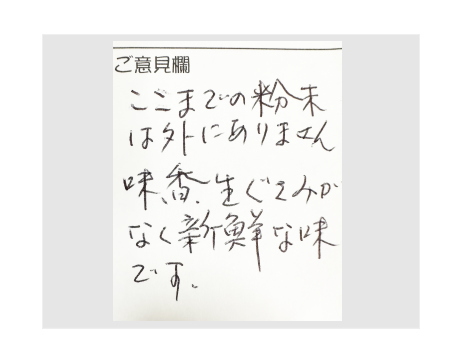 ご意見欄
ここまでの粉末
は外にありません
味、香、生ぐさみが
なく新鮮な味
です。